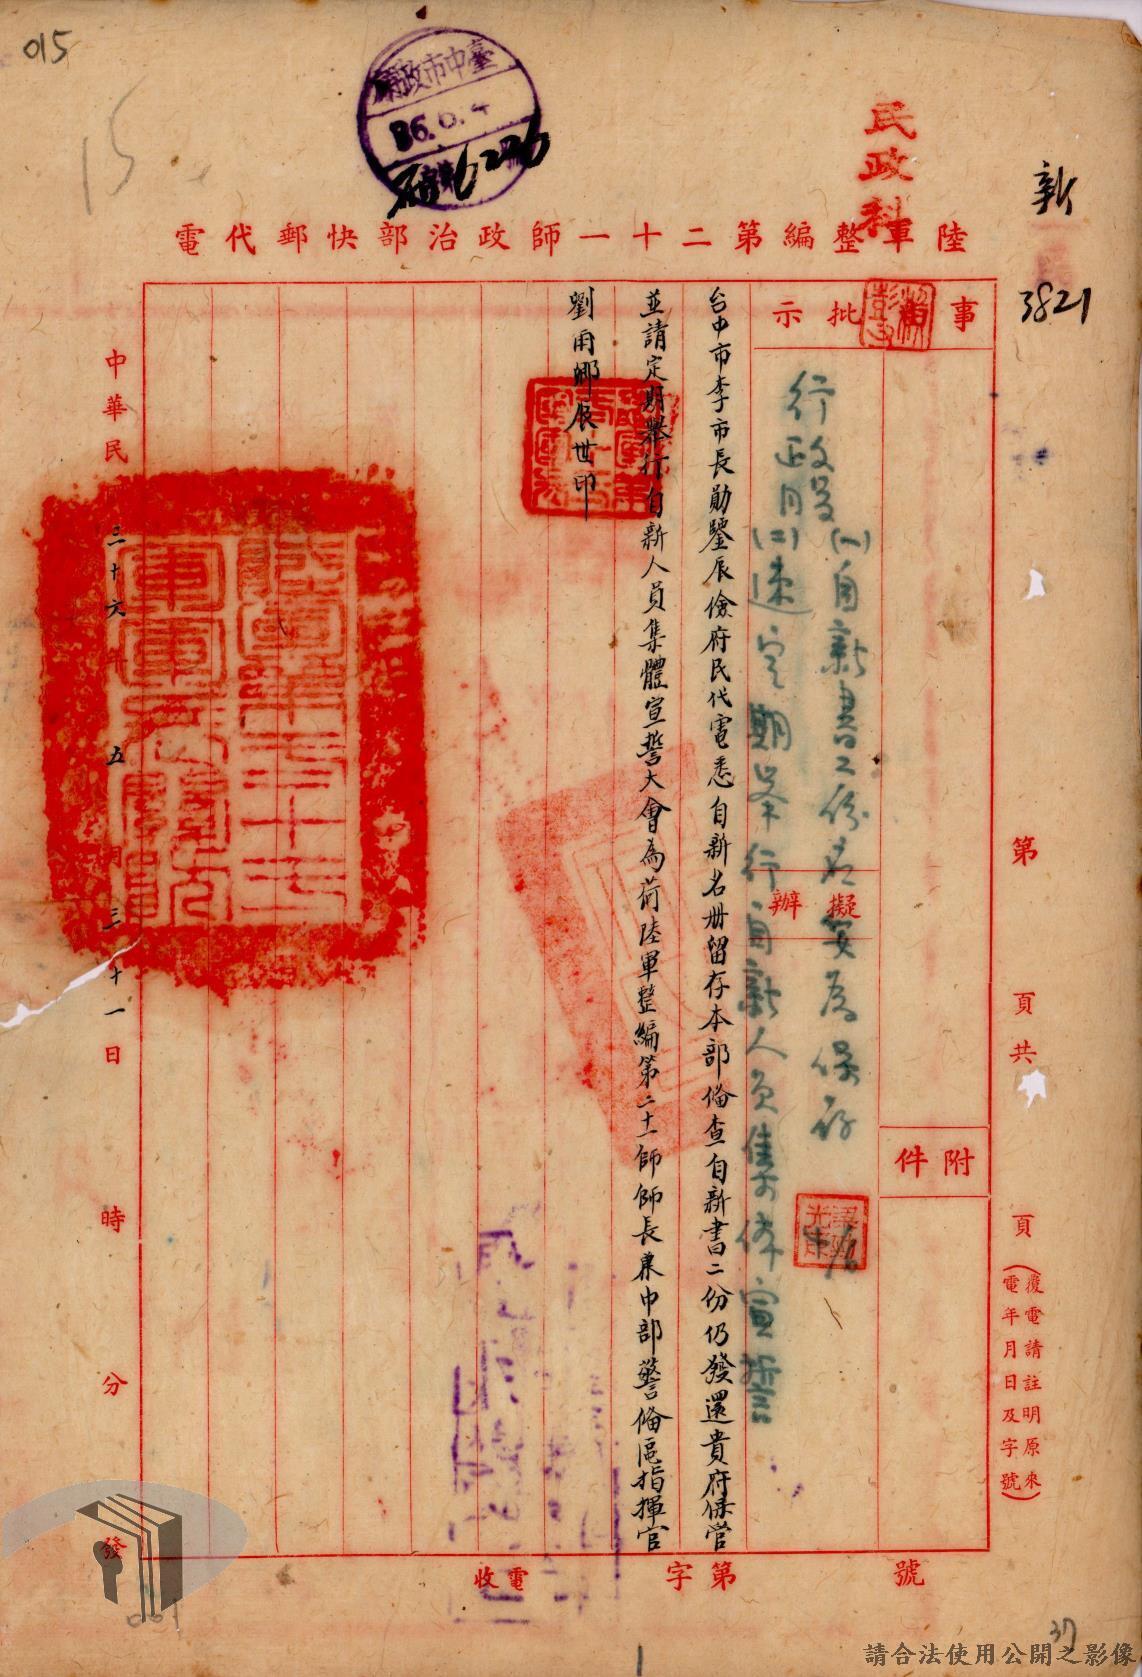 015
15
臺中市政府
36.6.4
6226
民政科
新
3821
陸軍整編第二十一師政治部快郵代電
事
批示
擬辦
附件
行政股
(一)自新書二份名冊為保存
(二)速定期舉行自新人員集体宣誓
台中市李市長勛鑒辰儉府民代電悉自新名册留存本部俻查自新書二份仍發還貴府保管
並請定期舉行自新人員集體宣誓大會為荷陸軍整編第二十一師師長兼中部警俻區指揮官
劉雨卿辰世印
中華民國三十六年五月三十一日時分發
第頁共頁
(覆電請註明原來電年月日及字號)
電收
字第號
001
37
請合法使用公開之影像